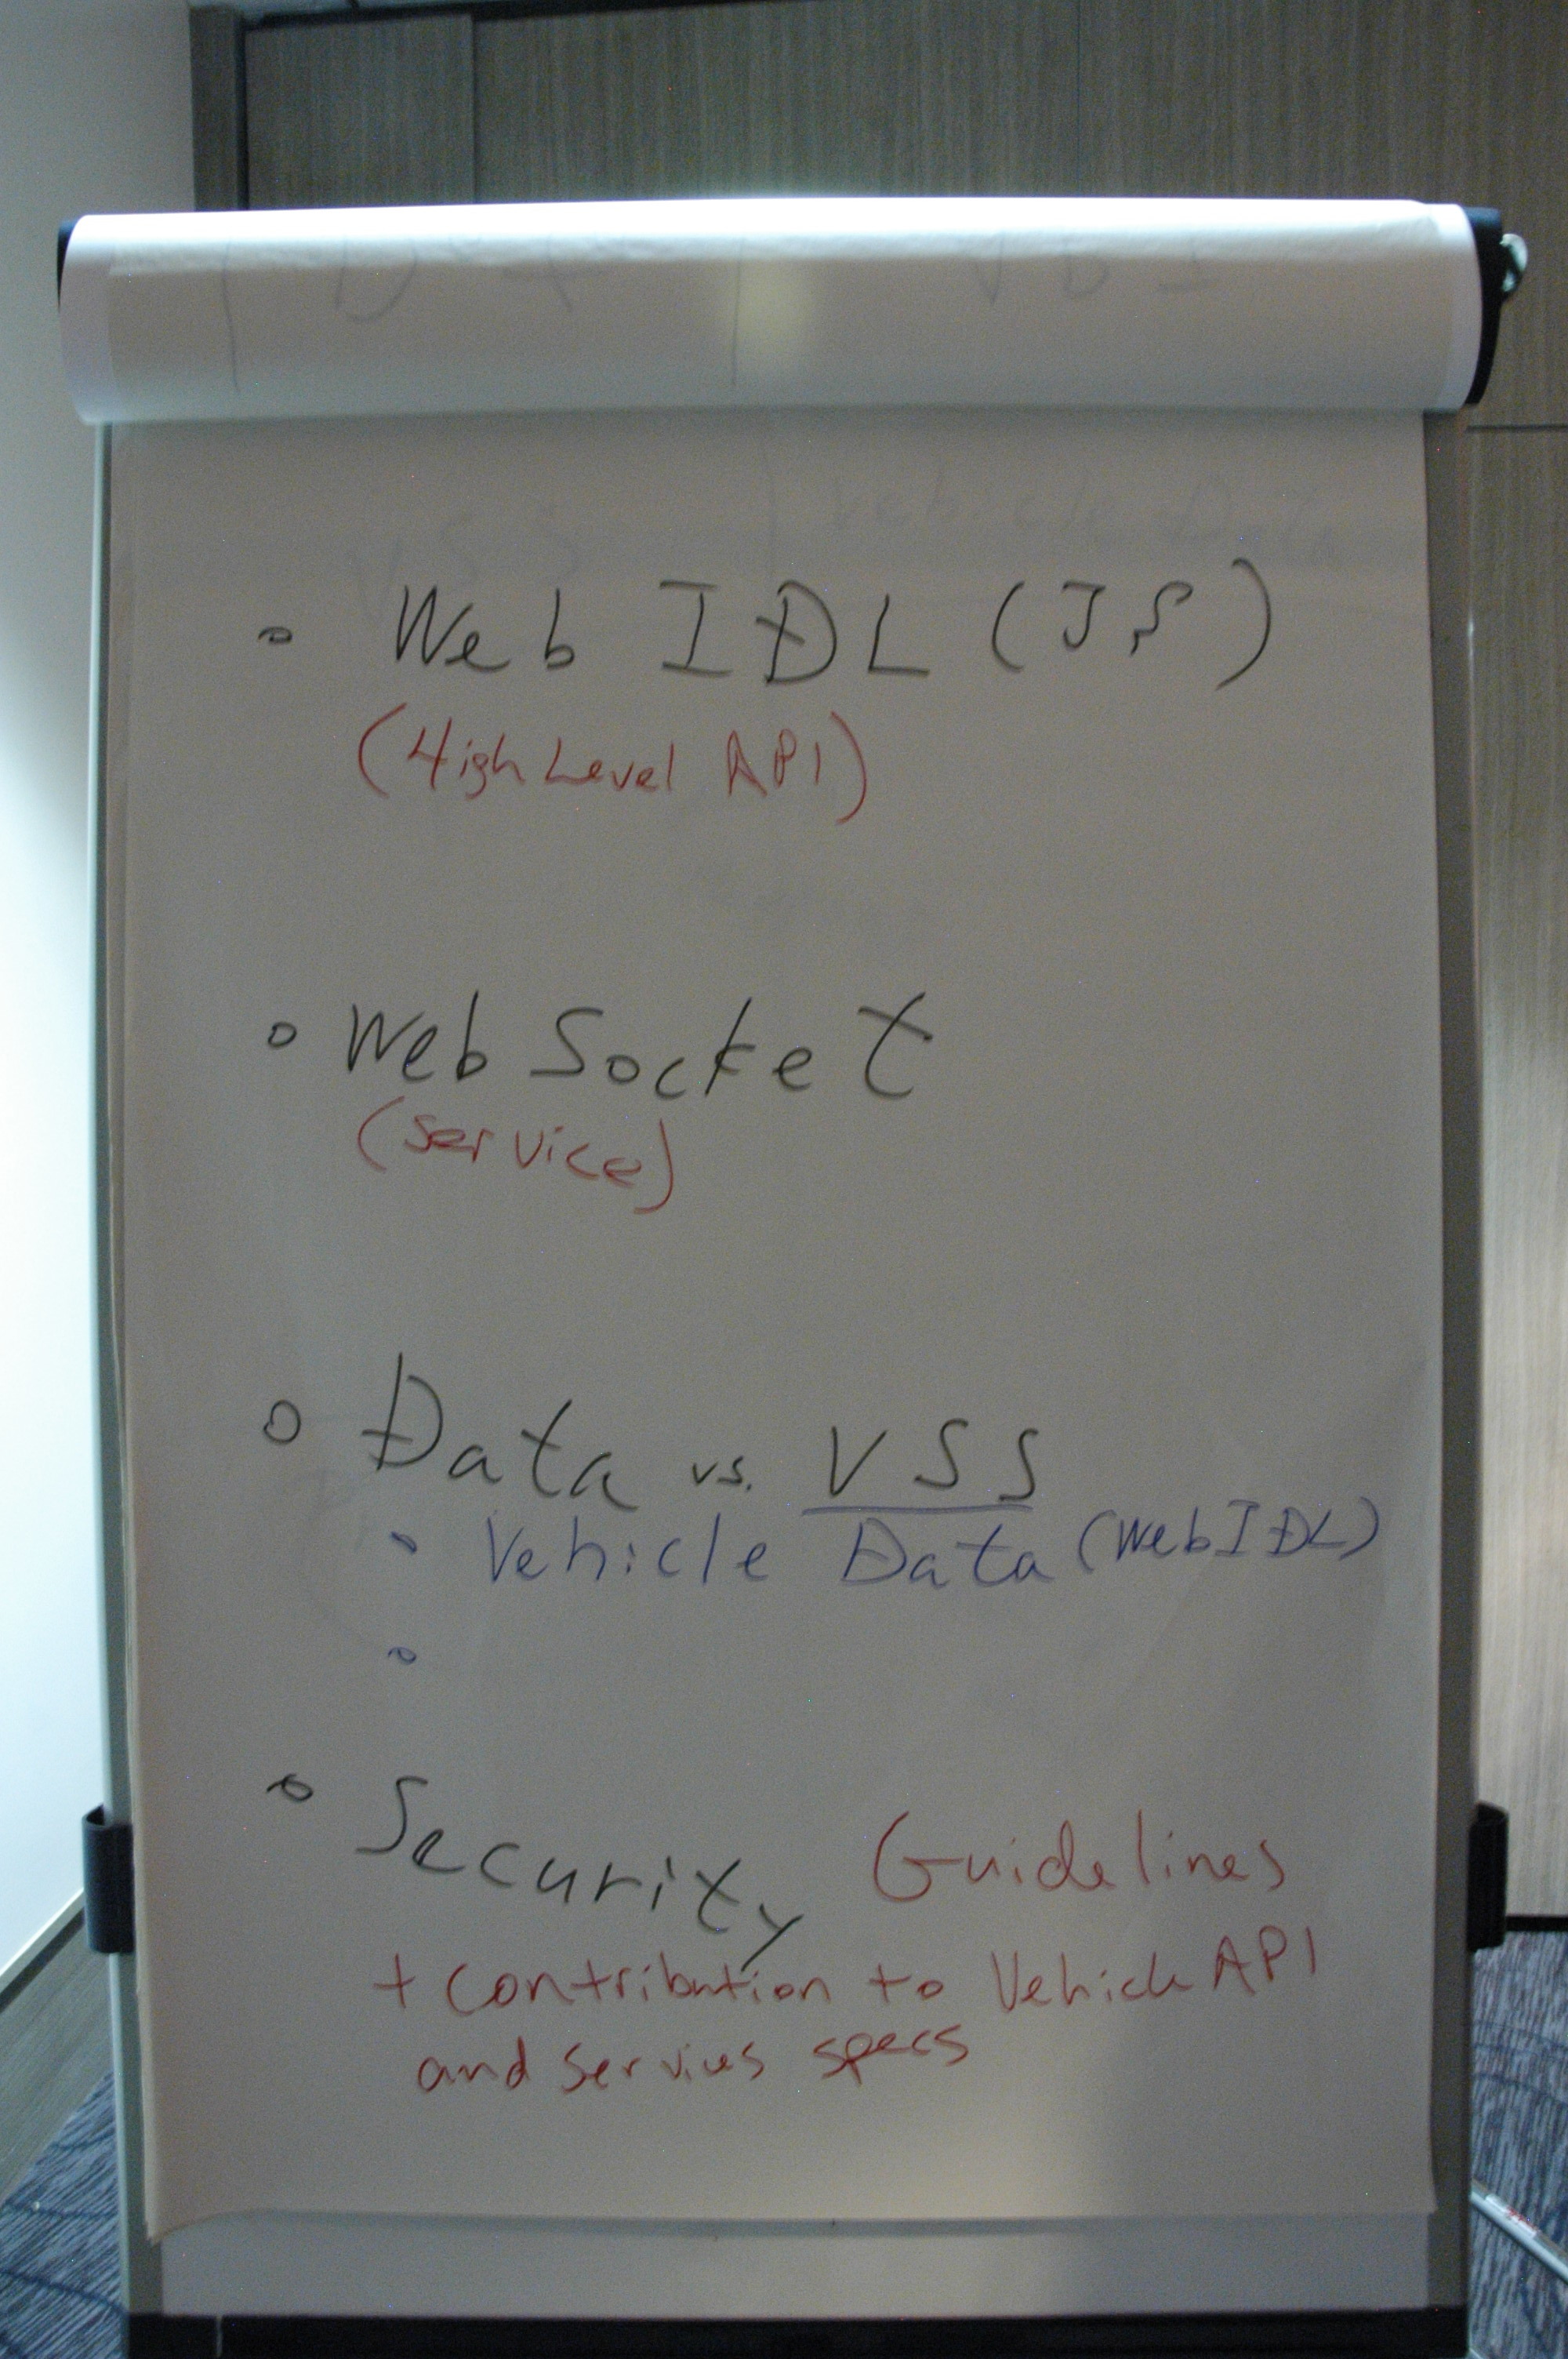 Web IDL (JS)
(High Level API)
Web Socket
(service)
Data vs. VSS
Vehicle Data (WebIDL)
Security Guidelines
+ contribution to Vehicle API
and Services specs